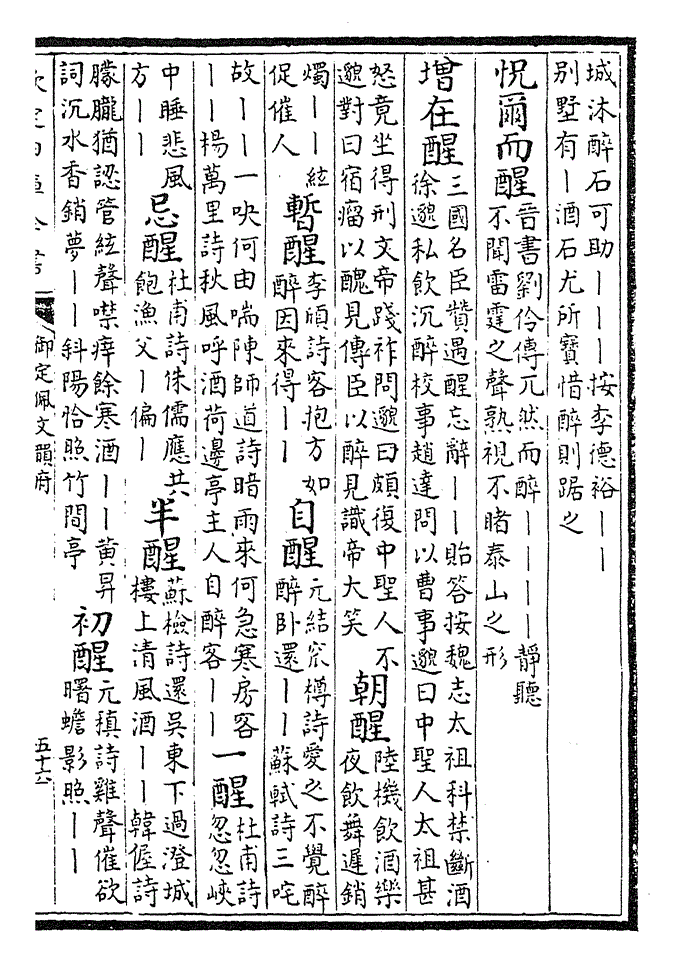 城沐醉石可助丨丨丨按李德裕丨丨
別墅有丨酒石尤所寶惜醉則踞之
怳爾而醒 晉書劉伶傳兀然而醉丨丨丨丨靜聽
不聞雷霆之聲熟視不睹泰山之形
增在醒 三國名臣贊遇醒忘辭丨丨貽答按魏志太祖科禁斷酒
徐邈私飲沉醉校事趙達問以曹事邈曰中聖人太祖甚
怒竟坐得刑文帝踐祚問邈曰頗復中聖人不
邈對曰宿瘤以醜見傳臣以醉見識帝大笑
朝醒 陸機飲酒樂
夜飲舞遲銷
燭丨丨絃
促催人
暫醒 李頎詩客抱方如
醉因來得丨丨
自醒 元結窊樽詩愛之不覺醉
醉卧還丨丨蘇軾詩三咤
故丨丨一吷何由喘陳師道詩暗雨來何急寒房客
丨丨楊萬里詩秋風呼酒荷邊亭主人自醉客丨丨
一醒 杜甫詩
忽忽峽
中睡悲風
方丨丨
忌醒 杜甫詩侏儒應共
飽漁父丨偏丨
半醒 蘇檢詩還吳東下過澄城
樓上清風酒丨丨韓偓詩
朦朧猶認管絃聲噤痒餘寒酒丨丨黄昇
詞沉水香銷夢丨丨斜陽恰照竹間亭
初醒 元稹詩雞聲催欲
曙蟾影照丨丨
御定佩文韻府
五十六